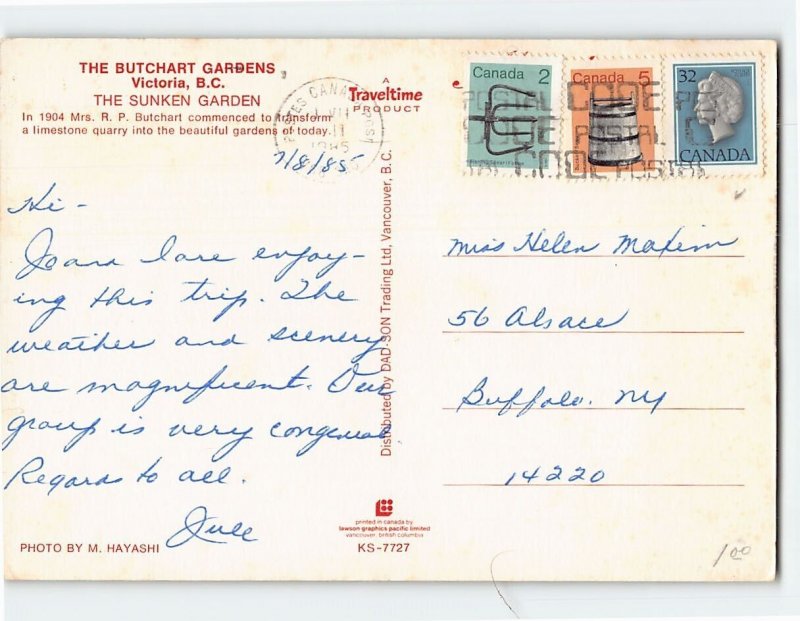 THE BUTCHART GARDENS
Victoria, B.C.
THE SUNKEN GARDEN
In 1904 Mrs. R. P. Butchart commenced to transform
a limestone quarry into the beautiful gardens of today.
A
Traveltime
PRODUCT
CANADA
VII
1985
Canada 2
Canada 5
32
CANADA
POSTAL CODE
CODE POSTAL
CODE POSTAL
7/8/85
Hi -
Joan & I are enjoy-
ing this trip. The
weather and scenery
are magnificent. Our
group is very congenial
Regards to all.
Miss Helen Maxim
56 Alsace
Buffalo. NY
14220
Distributed by DAD-SON Trading Ltd, Vancouver, B.C.
PHOTO BY M. HAYASHI
printed in canada by
lawson graphics pacific limited
vancouver, british columbia
KS-7727
1.00